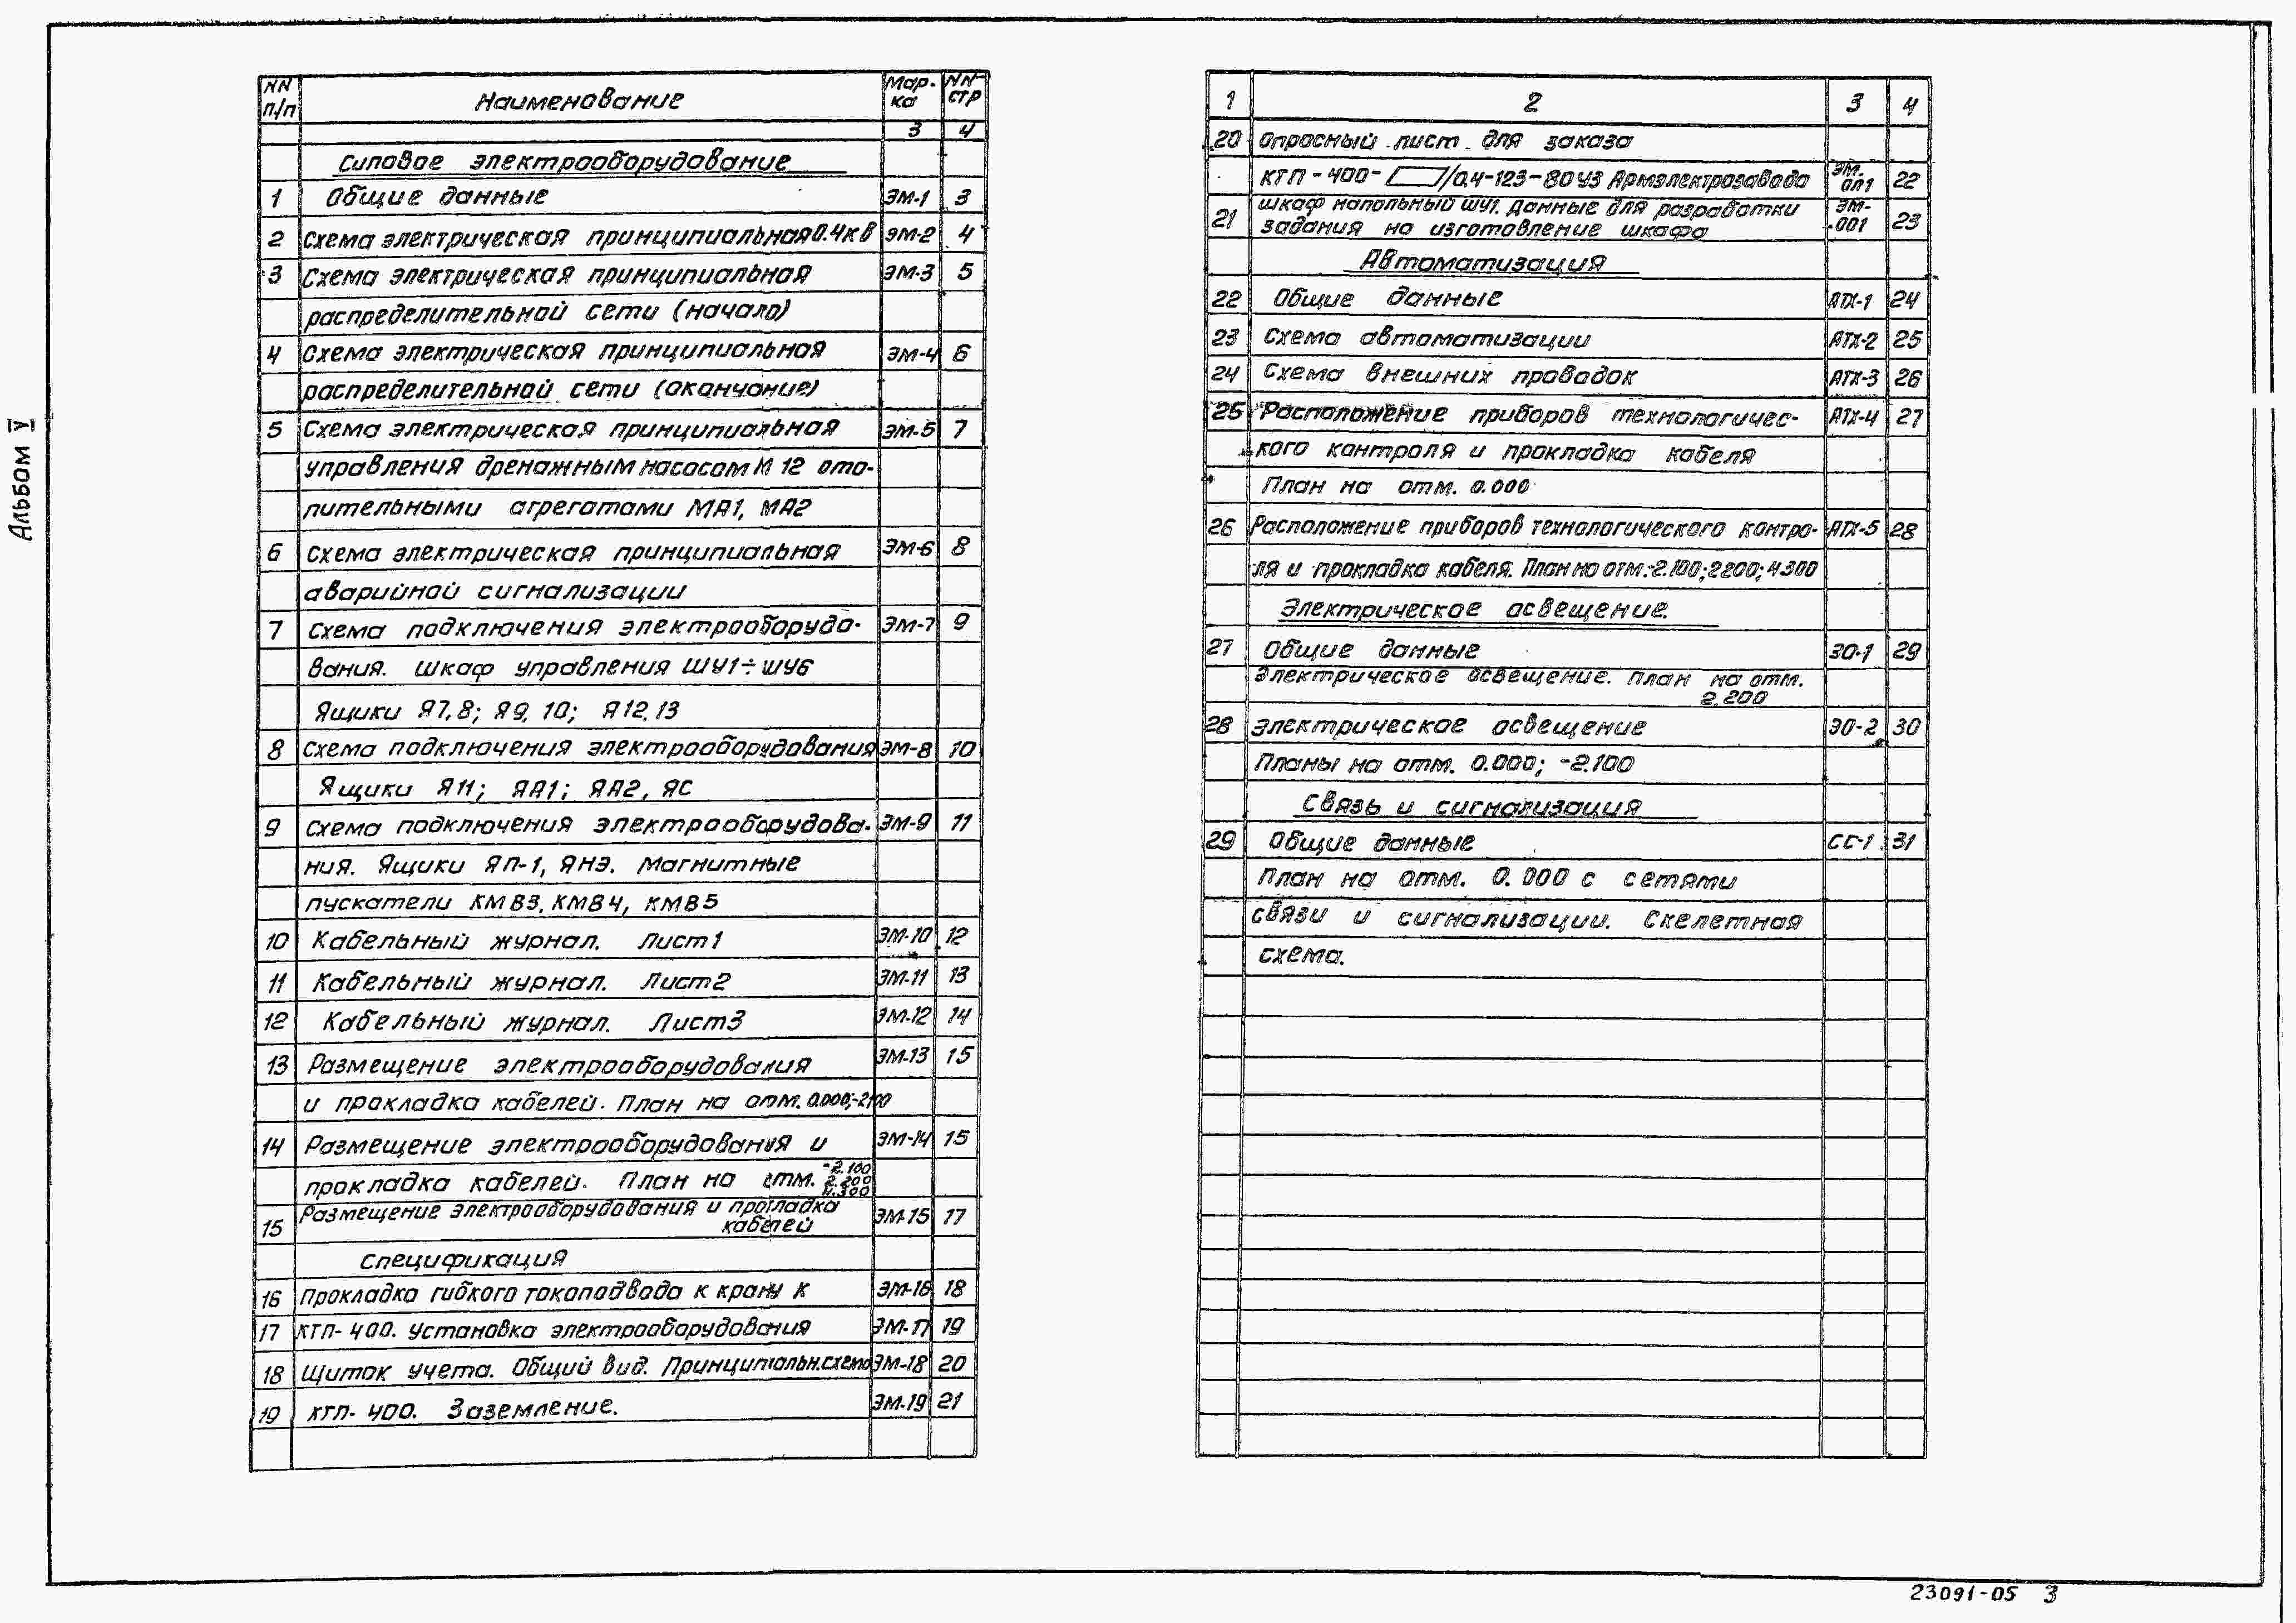 Альбом V
NN п/п Наименование Мар-ка NN стр
3 4
Силовое электрооборудование
1 Общие данные ЭМ-1 3
2 Схема электрическая принципиальная 0.4кв ЭМ-2 4
3 Схема электрическая принципиальная ЭМ-3 5
распределительной сети (начало)
4 Схема электрическая принципиальная ЭМ-4 6
распределительной сети (окончание)
5 Схема электрическая принципиальная ЭМ-5 7
управления дренажным насосом М 12 ото-
пительными агрегатами МА1, МА2
6 Схема электрическая принципиальная ЭМ-6 8
аварийной сигнализации
7 Схема подключения электрооборудо- ЭМ-7 9
вания. Шкаф управления ШУ1÷ШУ6
Ящики Я7,8; Я9, 10; Я12,13
8 Схема подключения электрооборудования ЭМ-8 10
Ящики Я11; ЯА1; ЯА2, ЯС
9 Схема подключения электрооборудова- ЭМ-9 11
ния. Ящики ЯП-1, ЯНЭ. Магнитные
пускатели КМВ3, КМВ4, КМВ5
10 Кабельный журнал. Лист1 ЭМ-10 12
11 Кабельный журнал. Лист2 ЭМ-11 13
12 Кабельный журнал. Лист3 ЭМ-12 14
13 Размещение электрооборудования ЭМ-13 15
и прокладка кабелей. План на отм. 0.000;-2.100
14 Размещение электрооборудования и ЭМ-14 15
прокладка кабелей. План на отм. -2.100 2.200 4.300
15 Размещение электрооборудования и прокладка кабелей ЭМ-15 17
спецификация
16 Прокладка гибкого токоподвода к крану К ЭМ-16 18
17 КТП-400. Установка электрооборудования ЭМ-17 19
18 Щиток учета. Общий вид. Принципиальн.схема ЭМ-18 20
19 КТП-400. Заземление. ЭМ-19 21
1 2 3 4
20 Опросный лист для заказа
КТП-400- /0.4-123-80У3 Армэлектрозавода ЭМ.ОЛ1 22
21 Шкаф напольный ШУ1. Данные для разработки ЭМ-001 23
задания на изготовление шкафа
Автоматизация
22 Общие данные АТХ-1 24
23 Схема автоматизации АТХ-2 25
24 Схема внешних проводок АТХ-3 26
25 Расположение приборов технологичес- АТХ-4 27
кого контроля и прокладка кабеля
План на отм. 0.000
26 Расположение приборов технологического контро- АТХ-5 28
ля и прокладка кабеля. План на отм.-2.100; 2200; 4300
Электрическое освещение.
27 Общие данные ЭО-1 29
Электрическое освещение. План на отм.
2.200
28 Электрическое освещение ЭО-2 30
Планы на отм. 0.000; -2.100
Связь и сигнализация
29 Общие данные СС-1 31
План на отм. 0.000 с сетями
связи и сигнализации. Скелетная
схема.
23091-05 3